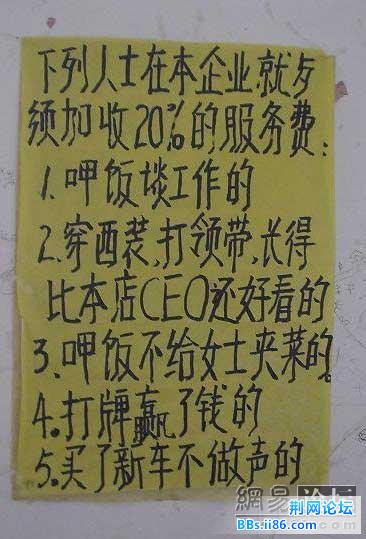 下列人士在本企业就歺
须加收20%的服务费:
1.呷饭谈工作的
2.穿西装、打领带、长得
比本店CEO还好看的
3、呷饭不给女士夹菜的。
4.打牌赢了钱的
5.买了新车不做声的
網易
荆网论坛
BBs.ii86.com